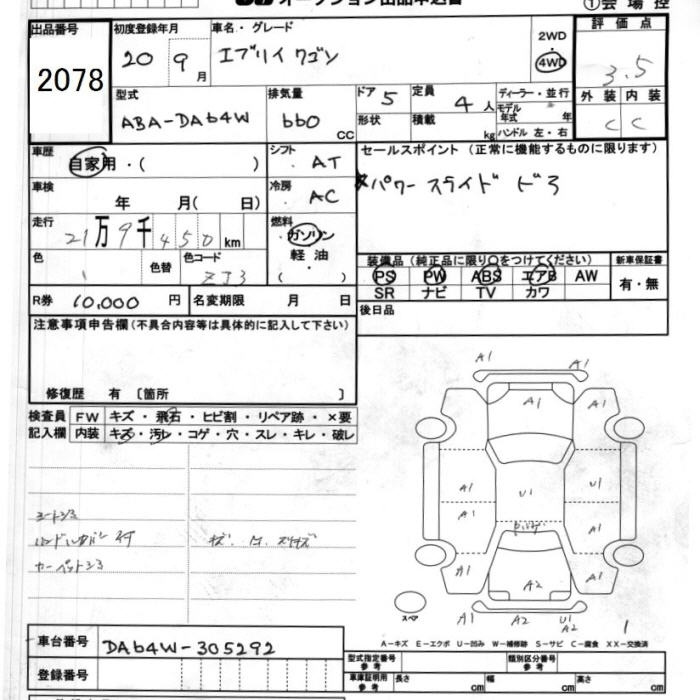 オークション出品申込書
①会場控
出品番号 2078
初度登録年月 20 9月
車名・グレード エブリイ ワゴン
2WD・4WD
評価点 3.5
型式 ABA-DA64W
排気量 660 CC
ドア 5 形状
定員 4人 積載 kg
ディーラー・並行
モデル年式 年
ハンドル 左・右
外装 内装
C C
車歴 自家用・( )
シフト AT
車検 年 月( 日)
冷房 AC
走行 21万9千450km
燃料 ガソリン・軽油・( )
色 1 色替 色コード ZJ3
R券 10,000円 名変期限 月 日
セールスポイント (正常に機能するものに限ります)
パワースライドドア
装備品(純正品に限り○をつけてください)
PS PW ABS エアB AW
SR ナビ TV カワ
新車保証書 有・無
後日品
注意事項申告欄(不具合内容等は具体的に記入して下さい)
修復歴 有 〔箇所 〕
検査員記入欄
FW キズ・飛石・ヒビ割・リペア跡・×要
内装 キズ・汚レ・コゲ・穴・スレ・キレ・破レ
シートシミ
カーペットシミ
A1 A1
A1 A1
A1 U1 U1
A1 A1
A1 A2 A1
A1 A2 U1 A2
スペア
1
A-キズ E-エクボ U-凹み W-補修跡 S-サビ C-腐食 XX-交換済
車台番号 DA64W-305292
登録番号
型式指定番号 参考 類別区分番号 参考
車庫証明用 参考 長さ cm 幅 cm 高さ cm